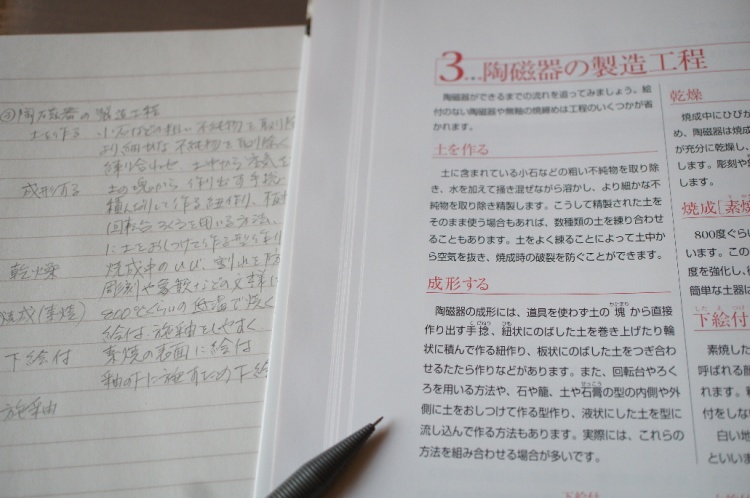 ③陶磁器の製造工程
土を作る 小石などの粗い不純物を取り除
より細かな不純物を取り除く
練り合わせ 土中から空気を
成形する 土の塊から作り出す手捻
積んだりして作る紐作り、板状
回転台、ろくろを用いる方法、
に土をおしつけて作る型作り
乾燥 焼成中のひび、割れを
彫刻や
焼成(素焼) 800℃ぐらいの低温で焼く
絵付、施釉をしやすく
下絵付 素焼の表面に絵付
釉の下に施すため下絵
施釉
3…陶磁器の製造工程
陶磁器ができるまでの流れを追ってみましょう。絵
付のない陶磁器や無釉の焼締めは工程のいくつかが省
かれます。
土を作る
土に含まれている小石などの粗い不純物を取り除
き、水を加えて掻き混ぜながら溶かし、より細かな不
純物を取り除き精製します。こうして精製された土を
そのまま使う場合もあれば、数種類の土を練り合わせ
ることもあります。土をよく練ることによって土中か
ら空気を抜き、焼成時の破裂を防ぐことができます。
成形する
陶磁器の成形には、道具を使わず土の塊から直接
作り出す手捻、紐状にのばした土を巻き上げたり輪
状に積んで作る紐作り、板状にのばした土をつぎ合わ
せるたたら作りなどがあります。また、回転台やろく
ろを用いる方法や、石や籠、土や石膏の型の内側や外
側に土をおしつけて作る型作り、液状にした土を型に
流し込んで作る方法もあります。実際には、これらの
方法を組み合わせる場合が多いです。
乾燥
焼成中にひびか
め、陶磁器は焼成
が充分に乾燥し、
します。彫刻や
します。
焼成［素焼
800度ぐら
います。この
度を強化し、
簡単な土器は
下絵付
素焼した
呼ばれる顔
われます。
付をしない
白い地
といいま
下絵付